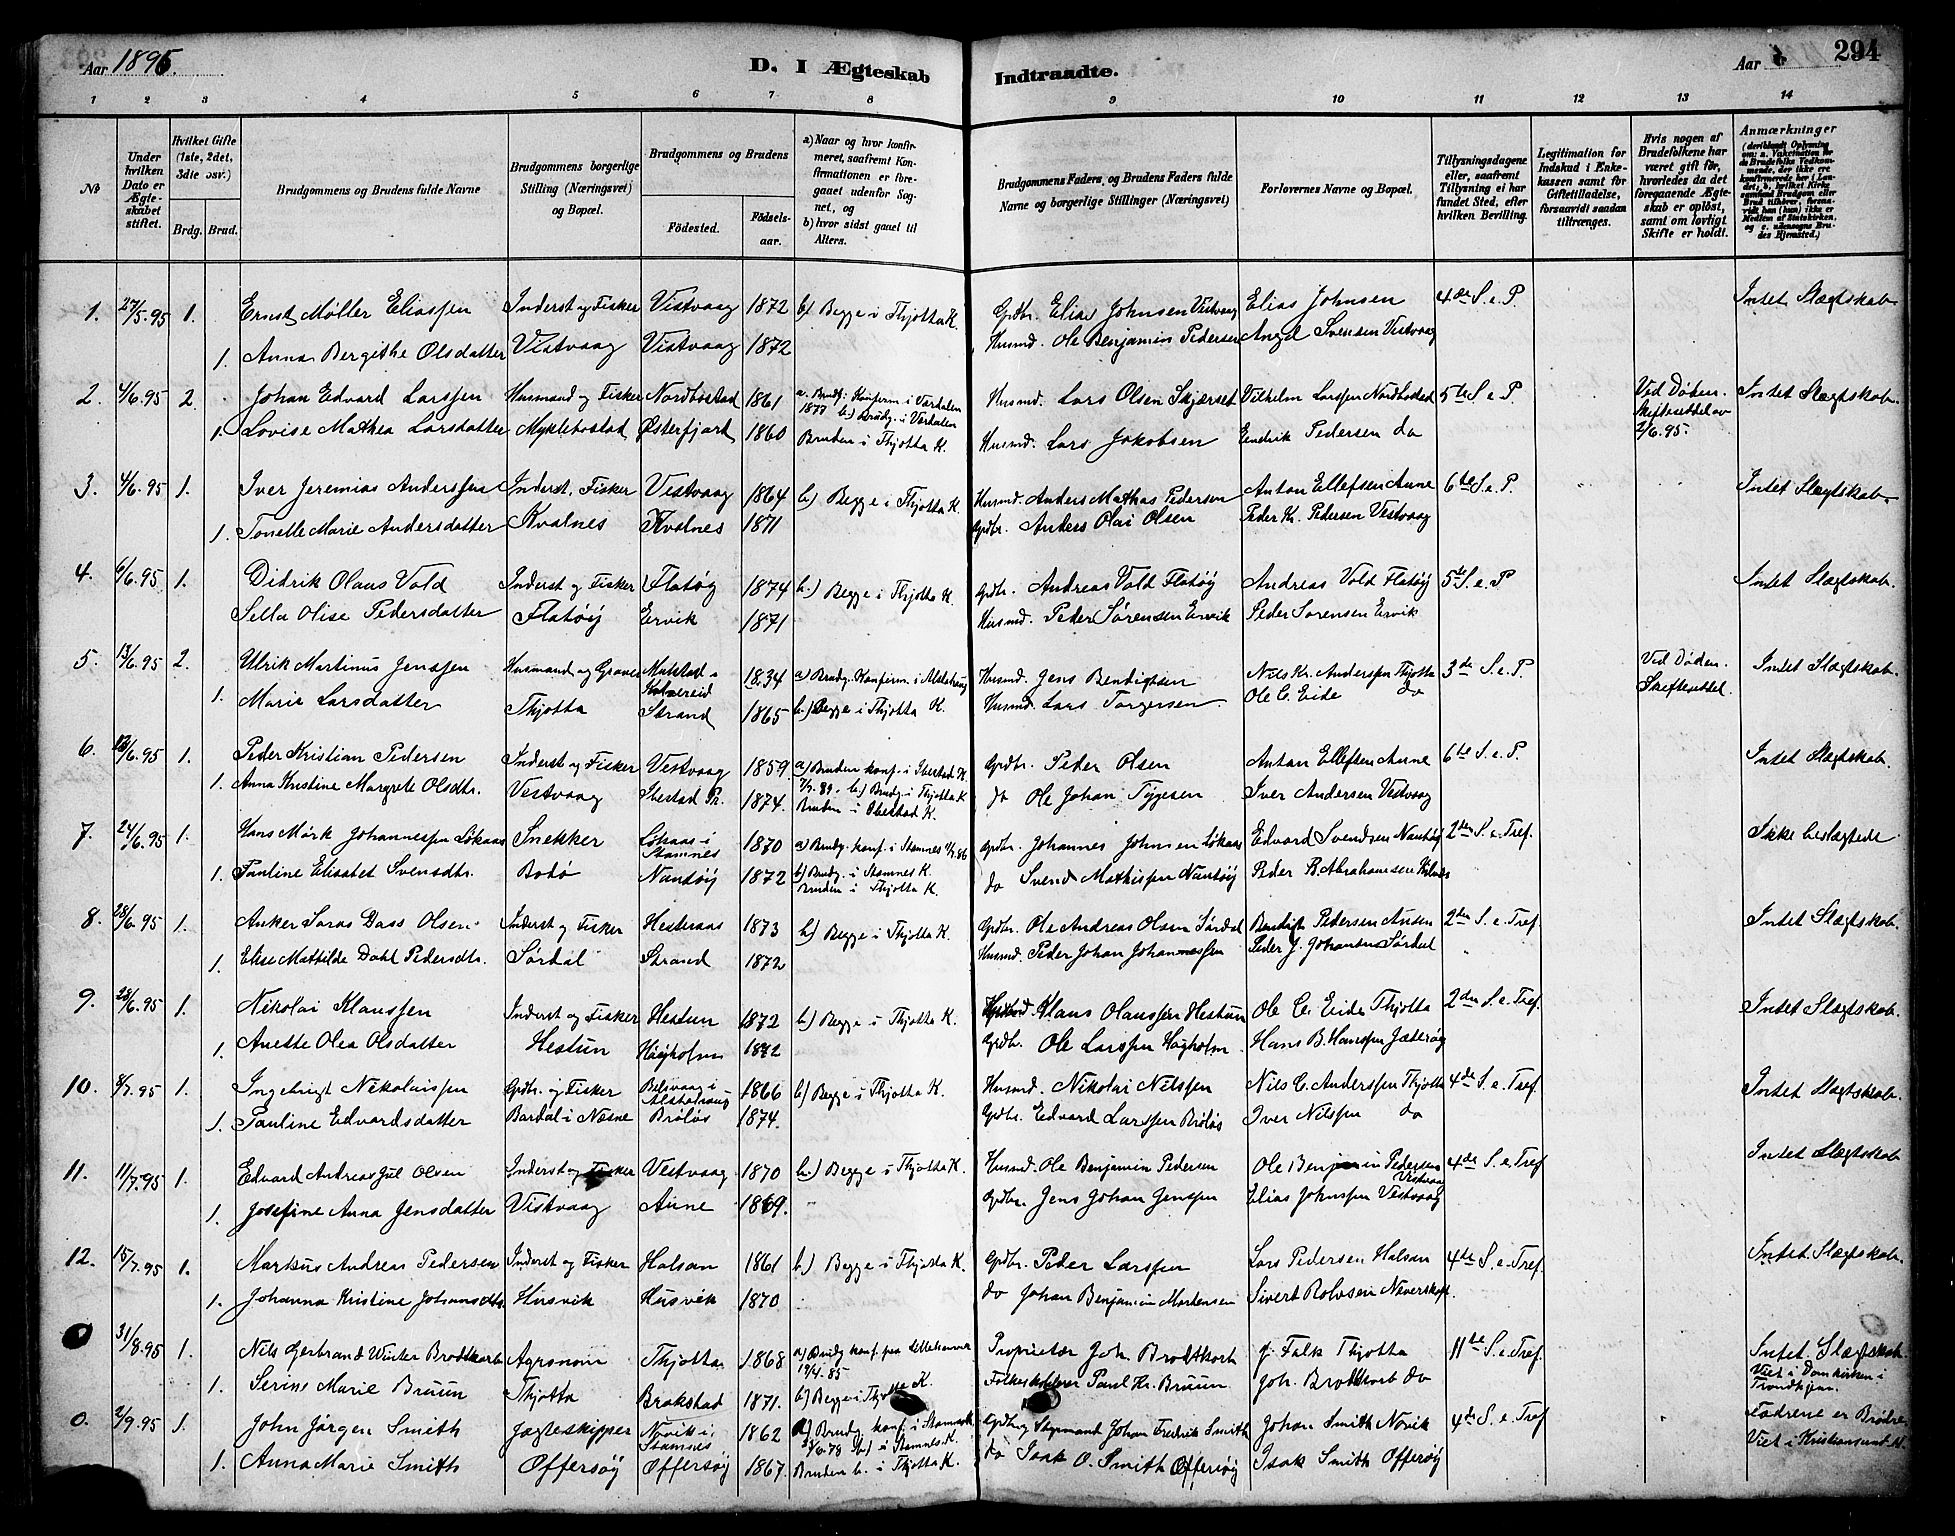 Aar 1895.
D. I Ægteskab Indtraadte.
Aar
294
1 2 3 4 5 6 7 8 9 10 11 12 13 14
No
Under hvilken Dato er Ægteskabet stiftet.
Hvilket Gifte (1ste, 2det, 3die osv.)
Brdg. Brud.
Brudgommens og Brudens fulde Navne
Brudgommens borgerlige Stilling (Næringsvei) og Bopæl.
Brudgommens og Brudens
Fødested.
Fødselsaar.
a) Naar og hvor konfirmeret, saafremt Konfirmationen er foregaaet udenfor Sognet, og
b) hvor sidst gaaet til Alters.
Brudgommens Faders, og Brudens Faders fulde Navne og borgerlige Stillinger (Næringsvei)
Forlovernes Navne og Bopæl.
Tillysningsdagene eller, saafremt Tillysning ei har fundet Sted, efter hvilken Bevilling.
Legitimation for Indskud i Enkekassen samt for Giftetilladelse, forsaavidt saadan tiltrænges.
Hvis nogen af Brudefolkene har været gift før, hvorledes da det foregaaende Ægteskab er opløst, samt om lovligt Skifte er holdt.
Anmærkninger
1. 27/5.95 1. Ernst Møller Eliassen Inderst og Fisker Vistvaag 1872 b) Begge i Thjotta K. Grdbr. Elias Johnsen Vistvaag Elias Johnsen 4de S. e. P. Intet Slægtskab
1. Anna Bergithe Olsdatter Vistvaag Vistvaag 1872 Husmd. Ole Benjamin Pedersen Angel Svensen Vestvaag
2. 4/6.95 2. Johan Edvard Larssen Husmand og Fisker Nordbostad 1861 a. Brudg. Konfirm. i Værdalen 1877 b.) Brudg. i Værdalen Husmd. Lars Olsen Skjærset Vilhelm Larssen Nordbostad 5te S. e P. Ved Døden. Skifteseddel av 2/6.95. Intet Slægtskab.
1. Lovise Mathea Larsdatter Myklebostad Østerfjord 1860 Bruden i Thjotta K. Husmd. Lars Jakobsen Endrik Pedersen do
3. 4/6.95 1. Iver Jeremias Anderssen Inderst. Fisker Vestvaag 1864 b.) Begge i Thjotta K. Husmd. Anders Mathias Pedersen Anton Ellefsen Aune 6te S. e. P. Intet Slægtskab.
1. Tonette Marie Andersdatter Kvalnes Kvalnes 1871 Grdbr. Anders Olai Olsen Peder Kr. Pedersen Vestvaag
4. 6/6.95 1. Didrik Olaus Vold Inderst og Fisker Flatøy 1874 b.) Begge i Thjotta K. Grdbr. Andreas Vold Flatøy Andreas Vold Flatøy 5te S. e. P Intet Slægtskab.
Sella Olise Pedersdatter Flatøy Ervik 1871 Husmd. Peder Sørensen Ervik Peder Sørensen Ervik
5. 13/6.95 2. Ulrik Martinus Jenssen Husmand og Graver 1834 a) Brudg. Konfirm. i Husmd. Jens Bendigtsen Nils Kr. Anderssen Thjotta 3de S. e. P Ved Døden. Skifteseddel. Intet Slægtskab.
1. Marie Larsdatter Thjotta Strand 1865 b.) Begge i Thjotta K. Husmd. Lars Torgersen Ole C. Eide do
6. 13/6.95 1. Peder Kristian Pedersen Inderst og Fisker Vestvaag 1859 a) Bruden konf. i Ibestad K Grdbr. Peder Olsen Anton Ellefsen Aune 6te S. e. P. Intet Slægtskab.
1. Anna Kristine Margrete Olsdtr. Vestvaag Ibestad Pr. 1874. 7/7.89. b.) Brudg. i Thjotta K Bruden i Ibestad K. do Ole Johan Tygesen Iver Andersen Vestvaag
7. 24/6.95 1. Hans Mørk Johannessen Løkaas Snekker Løkaas i Stamnes 1870 a) Brudg. konf. i Stamnes Grdbr. Johannes Johnsen Løkaas Edvard Svendsen Nautøy 2den S. e. Tref. Ikke beslægtede
1. Pauline Elisabet Svensdtr. Bodø Nautøy 1872 b) Brudg. i Stamnes K. Bruden i Thjotta K. do Svend Mathissen Nautøy Peder B. Abrahamsen
8. 28/6.95 1. Anker Dass Olsen Inderst og Fisker 1873 b) Begge i Thjotta K. Grdbr. Ole Andreas Olsen Sørdal Bendigt Pedersen 2den S. e. Tref. Intet Slægtskab.
1. Elise Mathilde Dahl Pedersdtr. Sørdal Strand 1872 Husmd. Peder Johan Johannessen Peder J. Johansen Sørdal
9. 28/6.95 1. Nikolai Klaussen Inderst og Fisker Hestun 1872 b.) Begge i Thjotta K. Klaus Olaussen Hestun Ole C. Eide Thjotta 2den S. e. Tref. Intet Slægtskab.
1. Anette Olea Olsdatter Hestun Høgholm 1872 Grdbr. Ole Larssen Høgholm. Hans B. Hanssen
10. 8/7.95 1. Ingebrigt Nikolaissen Grdbr. og Fisker 1866 b) Begge i Thjotta K. Husmd. Nikolai Nilssen Nils C. Anderssen Thjotta 4de S. e. Tref. Intet Slægtskab.
1. Pauline Edvardsdatter Bardal i Nesne Brøløs 1874. Grdbr. Edvard Larssen Brøløs Iver Nilssen do
11. 11/7.95 1. Edvard Andreas Jul Olsen Inderst og Fisker Vestvaag 1870 b.) Begge i Thjotta K. Husmd. Ole Benjamin Pedersen Ole Benjamin Pedersen Vistvaag 4de S. e. Tref. Intet Slægtskab
1. Josefine Anna Jensdatter Vistvaag Aune 1869. Grdbr. Jens Johan Jenssen Elias Johnssen Vestvaag
12. 15/7.95 1. Markus Andreas Pedersen Inderst og Fisker Halsan 1861 b.) Begge i Thjotta K. Grdbr. Peder Larssen Lars Pedersen Halsan 4de S. e. Tref. Intet. Slægtskab.
1. Johanna Kristine Johansdtr. Husvik Husvik 1870 do Johan Benjamin Mortensen Sivert Rolvsen
31/8.95 1. Nils Gerbrand Winter Brodtkorb Agronom Thjotta 1868 a) Brudg. konf. paa 19/4.85 Proprietær Joh. Brodtkorb J. Falk Thjotta 11te S. e. Tref. Intet. Slægtskab. Viet i Domkirken i Trondhjem.
1. Serine Marie Bruun Thjotta Brakstad 1871. b) Begge i Thjotta K. Folkeskolelærer Paul Hr. Bruun Joh. Brodtkorb do
0. 2/9.95 1. John Jørgen Smith Jægteskipper Novik i Stamnes 1862 a) Brudg. konf. i Stamnes b) i Stamnes K. Grdbr. og Styrmand Johan Fredrik Smith Johan Smith Novik 4de S. e. Tref. Fædrene er Brødre. Viet i Kristiansund K.
1. Anna Marie Smith Offersøy Offersøy 1867. Bruden b. i Thjotta K. do Isak O. Smith Offersøy Isak Smith Offersøy